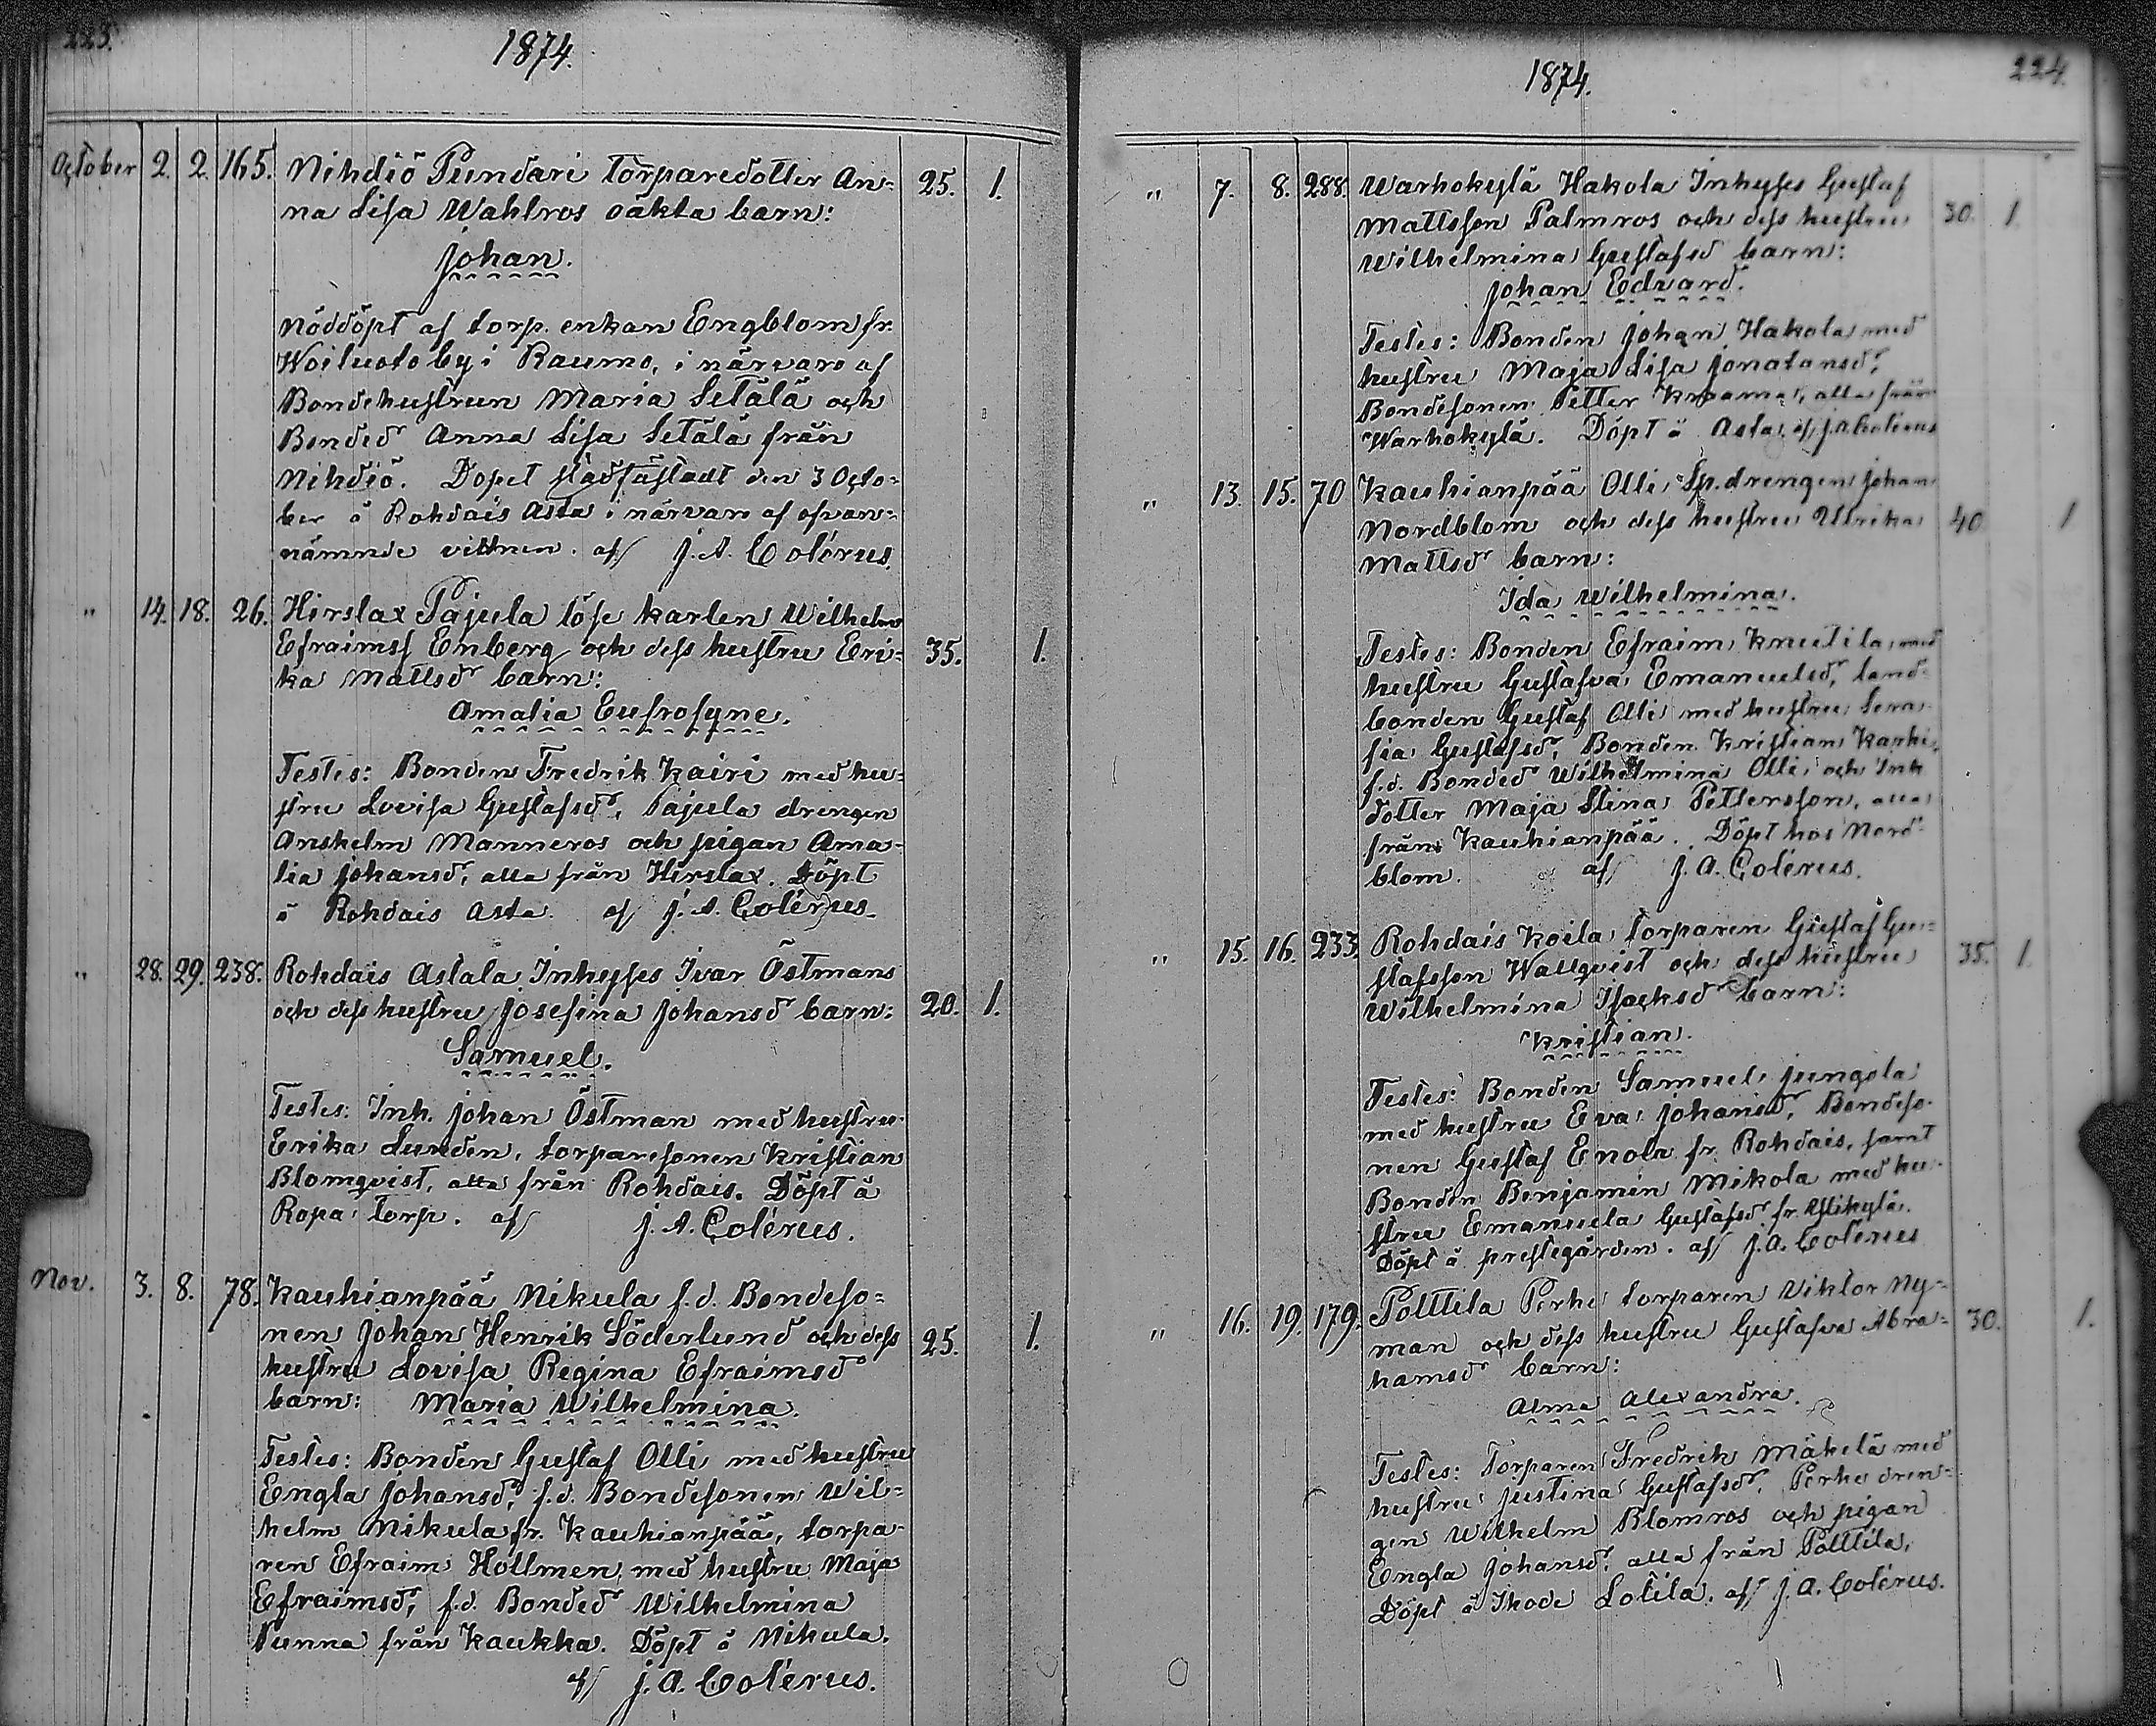 223.
1874.
October 2. 2. 165. Nihdiö Pundari torparedotter An-
na Lisa Wahlros oäkta barn: 25. 1.
Johan.
Nöddöpt af torp. enkan Engblom fr.
Woiluoto by i Raumo, i närvaro af
Bondehustrun Maria Setälä och
Bonded Anna Lisa Setälä från
Nihdiö. Dopet stadfästadt den 3 Octo-
ber å Rohdais Asta i närvaro af ofvan-
nämnde vittnen. af J. A. Colérus.
" 14. 18. 26. Hirslax Pajula löse karlen Wilhelm
Efraimss Enberg och dess hustru Eri- 35. 1.
ka Mattsd barn:
Amalia Eufrosyne.
Testes: Bonden Fredrik Kairi med hu-
stru Lovisa Gustafsd, Pajula drengen
Anshelm Manneros och pigan Ama-
lia Johansd, alla från Hirslax. Döpt
å Rohdais Asta. af J. A. Colérus.
" 28. 29. 238. Rohdais Astala Inhyses Ivar Östmans
och dess hustru Josefina Johansd barn: 20. 1.
Samuel.
Testes: Inh. Johan Östman med hustru
Erika Lunden, torparesonen Kristian
Blomqvist, alla från Rohdais. Döpt å
Ropa torp. af J. A. Colérus.
Nov. 3. 8. 78. Kauhianpää Nikula f.d. Bondeso-
nen Johan Henrik Söderlund och dess 25. 1.
hustru Lovisa Regina Efraimsd
barn: Maria Wilhelmina.
Testes: Bonden Gustaf Olli med hustru
Engla Johansd, f.d. Bondesonen Wil-
helm Nikula fr. Kauhianpää, torpa-
ren Efraim Hollmen med hustru Maja
Efraimsd, f.d. Bonded Wilhelmina
Tunna från Kaukka. Döpt å Nikula.
af J. A. Colérus.
224.
1874.
" 7. 8. 288. Warhokylä Hakola Inhyses Gustaf
Mattsson Palmros och dess hustru 30. 1.
Wilhelmina Gustafsd barn:
Johan Edvard.
Testes: Bonden Johan Hakola med
hustru Maja Lisa Jonatansd,
Bondesonen Petter alla från
Warhokylä. Döpt å Asta af J. A. Colérus
" 13. 15. 70 Kauhianpää Olli Sp. drengen Johan
Nordblom och dess hustru Ulrika 40 1
Mattsd barn:
Ida Wilhelmina.
Testes: Bonden Efraim Knutila med
hustru Gustafva Emanuelsd, land-
bonden Gustaf Olli med hustru Sera-
fia Gustafsd, Bonden Kristian Karhi,
f.d. Bonded Wilhelmina Olli och Inh
dotter Maja Stina Pettersson, alla
från Kauhianpää. Döpt hos Nord-
blom. af J. A. Colérus.
" 15. 16. 233. Rohdais Koila torparen Gustaf Gu-
stafsson Wallqvist och dess hustru 35. 1.
Wilhelmina Isacksd barn:
Kristian.
Testes: Bonden Samuel Jungola
med hustru Eva Johansd, Bondeso-
nen Gustaf Enola fr. Rohdais, samt
Bonden Benjamin Mikola med hu-
stru Emanuela Gustafsd fr. Ylikylä.
Döpt å prestegården. af J. A. Colérus
" 16. 19. 179. Polttila Perhe torparen Viktor Ny-
man och dess hustru Gustafva Abra- 30. 1.
hamsd barn:
Alma Alexandra.
Testes: Torparen Fredrik Mäkelä med
hustru Justina Gustafsd, Perhe dren-
gen Wilhelm Blomros och pigan
Engla Johansd, alla från Polttila.
Döpt å Ihode Lotila. af J. A. Colérus.